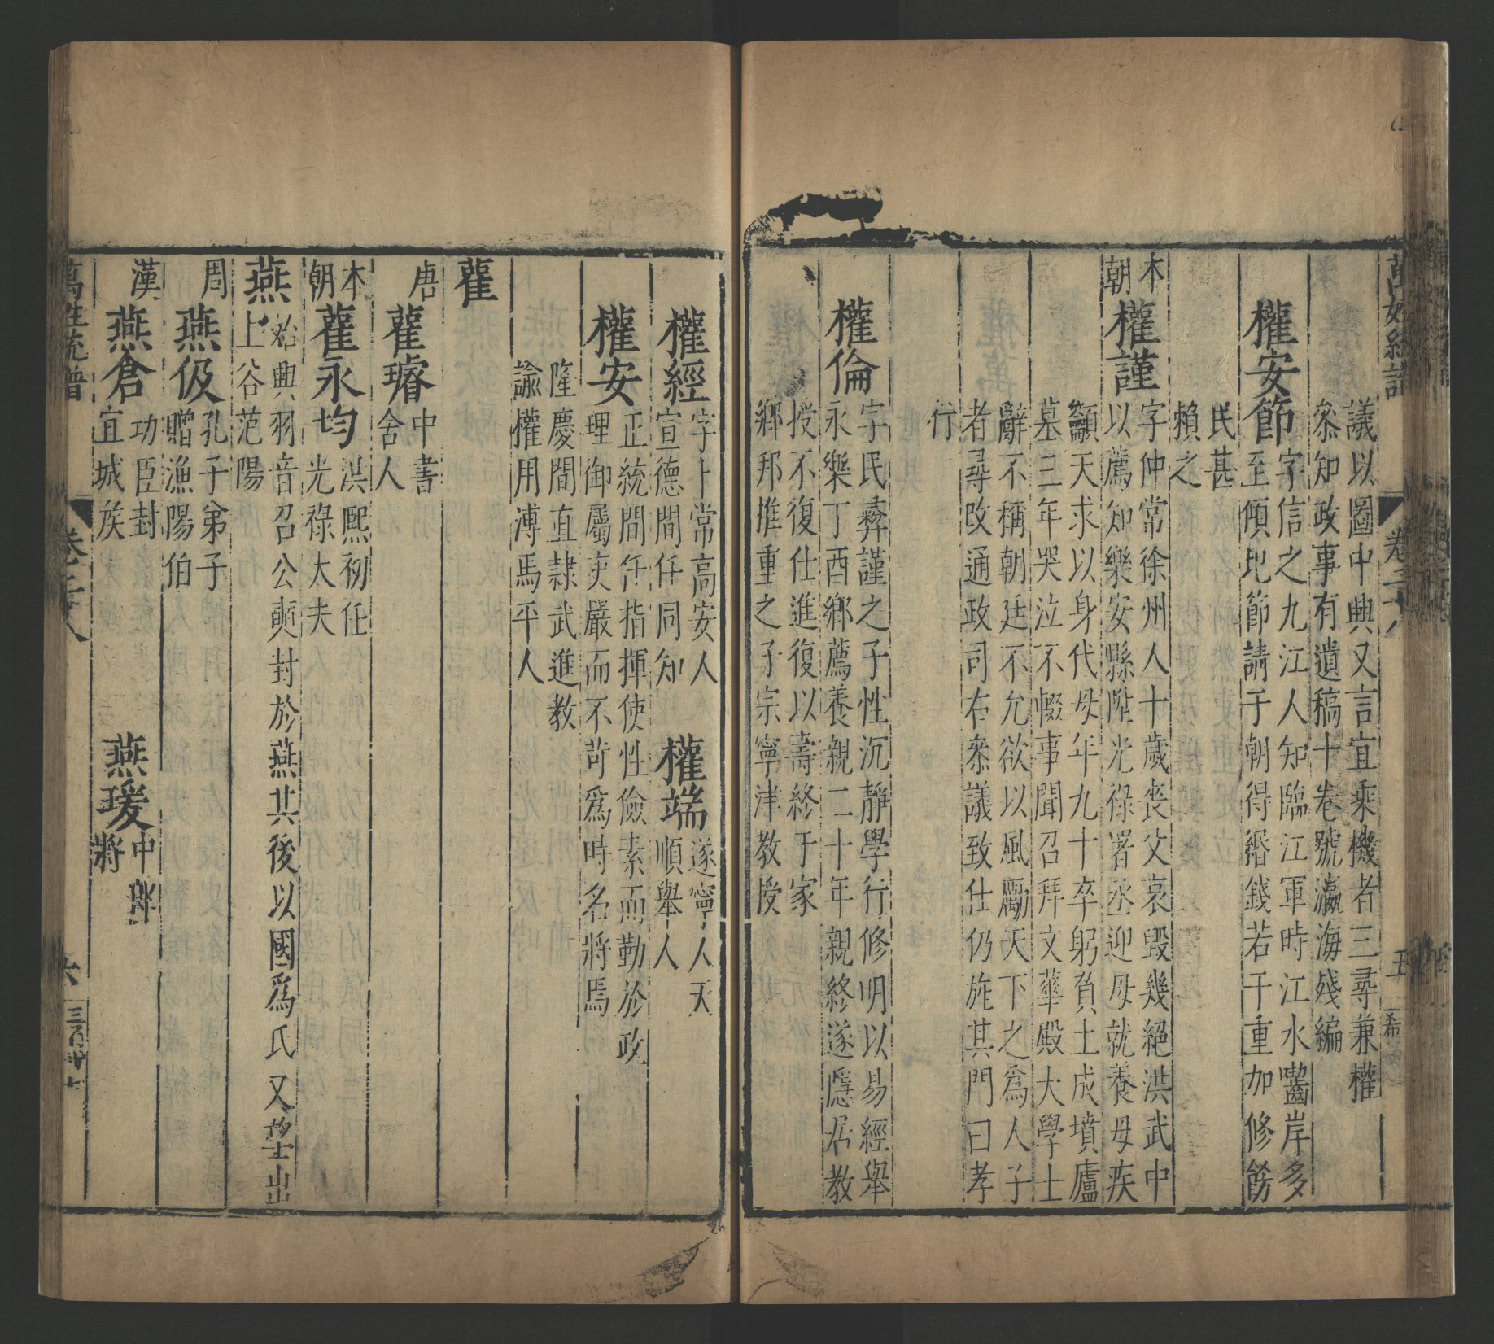 萬姓統譜
卷之二十八
五
希
議以圖中興又言宜乘機者三尋兼權
叅知政事有遺稿十卷號瀛海殘編
權安節
字信之九江人知臨江軍時江水齧岸多
至傾圯節請于朝得緡錢若干重加修餝
民甚
賴之
本朝
權謹
字仲常徐州人十歲喪父哀毀幾絕洪武中
以薦知樂安縣陞光祿署丞迎母就養母疾
籲天求以身代母年九十卒躬負土成墳廬
墓三年哭泣不輟事聞召拜文華殿大學士
辭不稱朝廷不允欲以風勵天下之爲人子
者尋改通政司右叅議致仕仍旌其門曰孝
行
權倫
字民彝謹之子性沉靜學行修明以易經舉
永樂丁酉鄉薦養親二十年親終遂隱居教
授不復仕進復以壽終于家
鄉邦推重之子宗寧津教授
權經
字士常高安人
宣德間任同知
權端
遂寧人天
順舉人
權安
正統間任指揮使性儉素而勤於政
理御屬吏嚴而不苛爲時名將焉
隆慶間直隷武進教
諭權用溥馬平人
雚
唐
雚璿
中書
舍人
本朝
雚永均
洪熙初任
光祿大夫
燕
始興羽音召公奭封於燕其後以國爲氏又望出
上谷范陽
周
燕伋
孔子弟子
贈漁陽伯
漢
燕倉
功臣封
宜城族
燕瑗
中郎
將
萬姓統譜
六